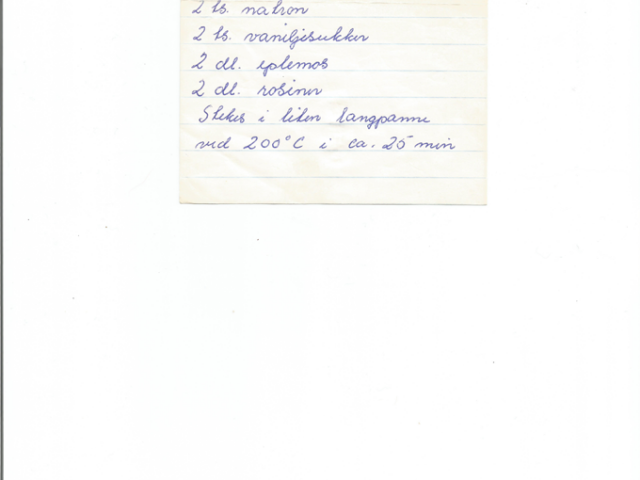 2 ts. natron
2 ts. vaniljesukker
2 dl. eplemos
2 dl. rosiner
Stekes i liten langpanne
ved 200°C i ca. 25 min